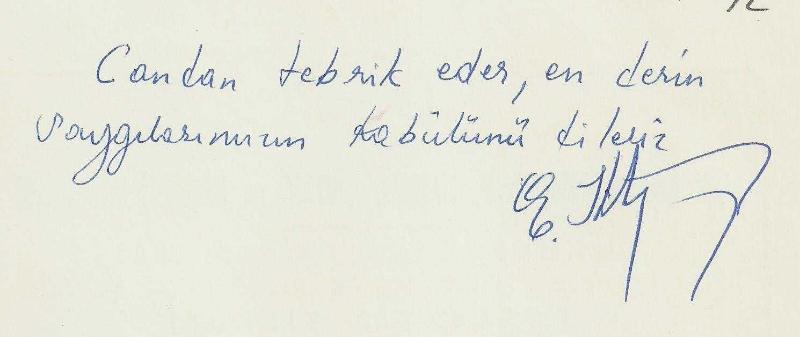 Candan tebrik eder, en derin
Saygılarımızın kabülünü dileriz